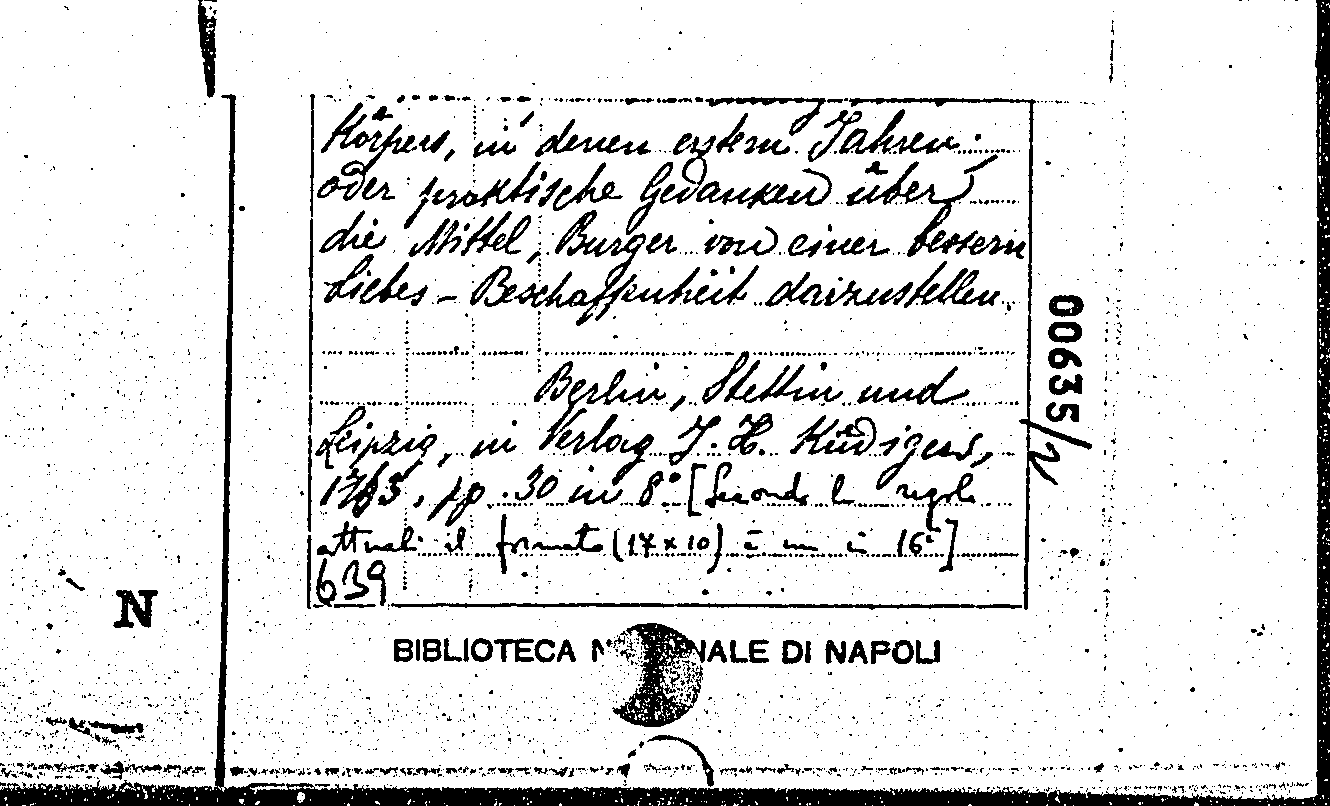 Körpers, in denen erstern Jahren;
oder praktische Gedanken über
die Mittel, Burger von einer bessern
Liebes - Beschaffenheit darzustellen.
Berlin, Stettin und
Leipzig, in Verlag J. H. Rüdigers,
pp. 30 in 8° [Secondo le regole
attuali il formato (17 x 10) è un in 16°]
639
00635/2
N
BIBLIOTECA N NALE DI NAPOLI